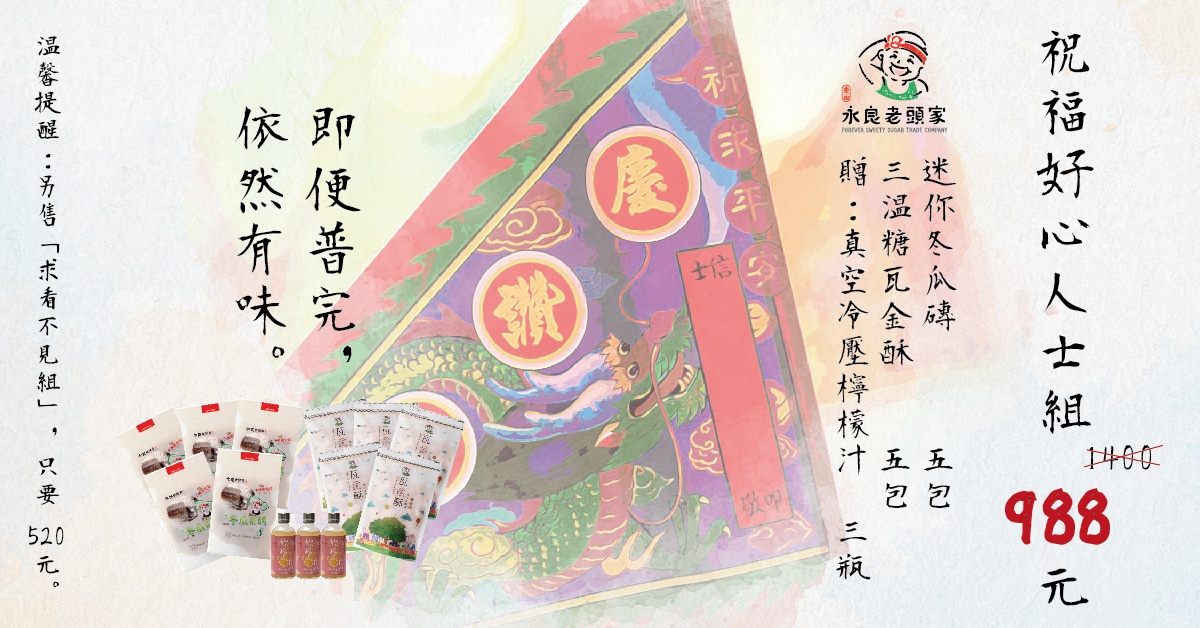 祝福好心人士組
1400
988元
永良老頭家
FOREVER SWEETY SUGAR TRADE COMPANY
迷你冬瓜磚 五包
三溫糖瓦金酥 五包
贈：真空冷壓檸檬汁 三瓶
祈求平安
慶
讚
信士
敬叩
即便普完，
依然有味。
溫馨提醒：另售「求看不見組」，只要520元。